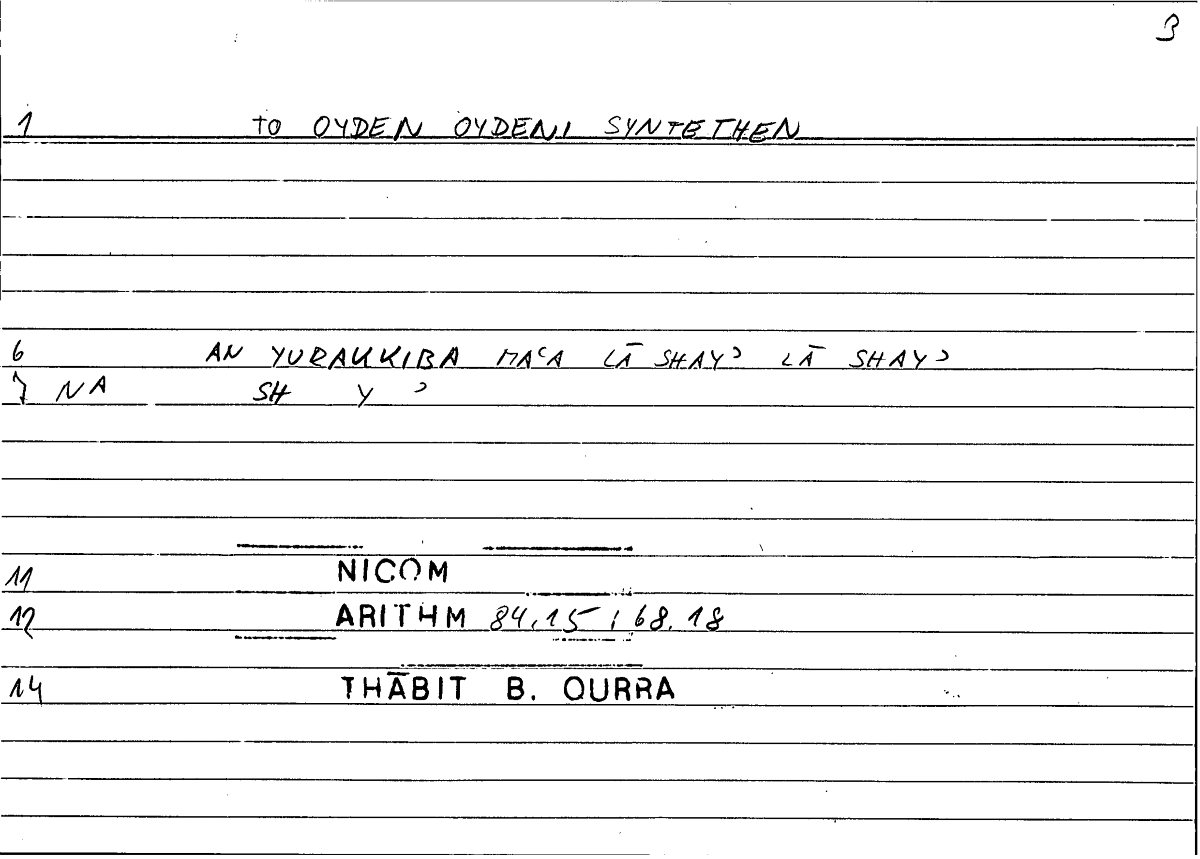 3
1 TO OYDEN OYDENI SYNTETHEN
6 AN YURAKKIBA MAʿA LĀ SHAYʾ LĀ SHAYʾ
7 NA SH Y ʾ
11 NICOM
12 ARITHM 84,15 ; 68.18
14 THĀBIT B. QURRA